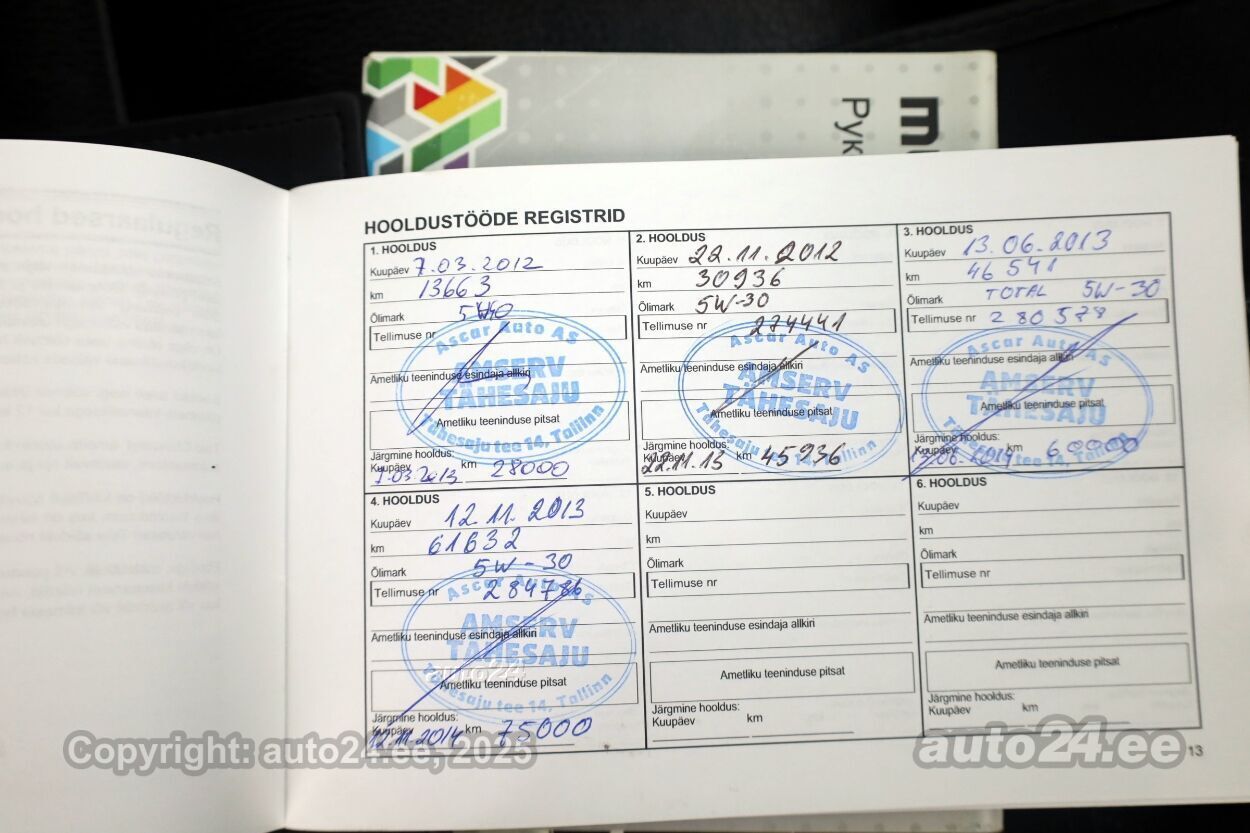 HOOLDUSTÖÖDE REGISTRID
1. HOOLDUS
Kuupäev 7.03.2012
km 13663
Õlimark
Tellimuse nr
Ascar Auto AS
AMSERV
TÄHESAJU
Tähesaju tee 14, Tallinn
Ametliku teeninduse esindaja allkiri
Ametliku teeninduse pitsat
Järgmine hooldus:
Kuupäev 7.03.2013 km 28000
2. HOOLDUS
Kuupäev 22.11.2012
km 30936
Õlimark 5W-30
Tellimuse nr 274441
Ascar Auto AS
AMSERV
TÄHESAJU
Tähesaju tee 14, Tallinn
Ametliku teeninduse esindaja allkiri
Ametliku teeninduse pitsat
Järgmine hooldus:
Kuupäev 22.11.13 km 45936
3. HOOLDUS
Kuupäev 13.06.2013
km 46541
Õlimark TOTAL 5W-30
Tellimuse nr 280578
Ascar Auto AS
AMSERV
TÄHESAJU
Tähesaju tee 14, Tallinn
Ametliku teeninduse esindaja allkiri
Ametliku teeninduse pitsat
Järgmine hooldus:
Kuupäev km 60000
4. HOOLDUS
Kuupäev 12.11.2013
km 61632
Õlimark 5W-30
Tellimuse nr 284786
Ascar Auto AS
AMSERV
TÄHESAJU
Tähesaju tee 14, Tallinn
Ametliku teeninduse esindaja allkiri
Ametliku teeninduse pitsat
Järgmine hooldus:
Kuupäev 12.11.2014 km 75000
5. HOOLDUS
Kuupäev
km
Õlimark
Tellimuse nr
Ametliku teeninduse esindaja allkiri
Ametliku teeninduse pitsat
Järgmine hooldus:
Kuupäev km
6. HOOLDUS
Kuupäev
km
Õlimark
Tellimuse nr
Ametliku teeninduse esindaja allkiri
Ametliku teeninduse pitsat
Järgmine hooldus:
Kuupäev km
13
auto24
Copyright: auto24.ee, 2025
auto24.ee